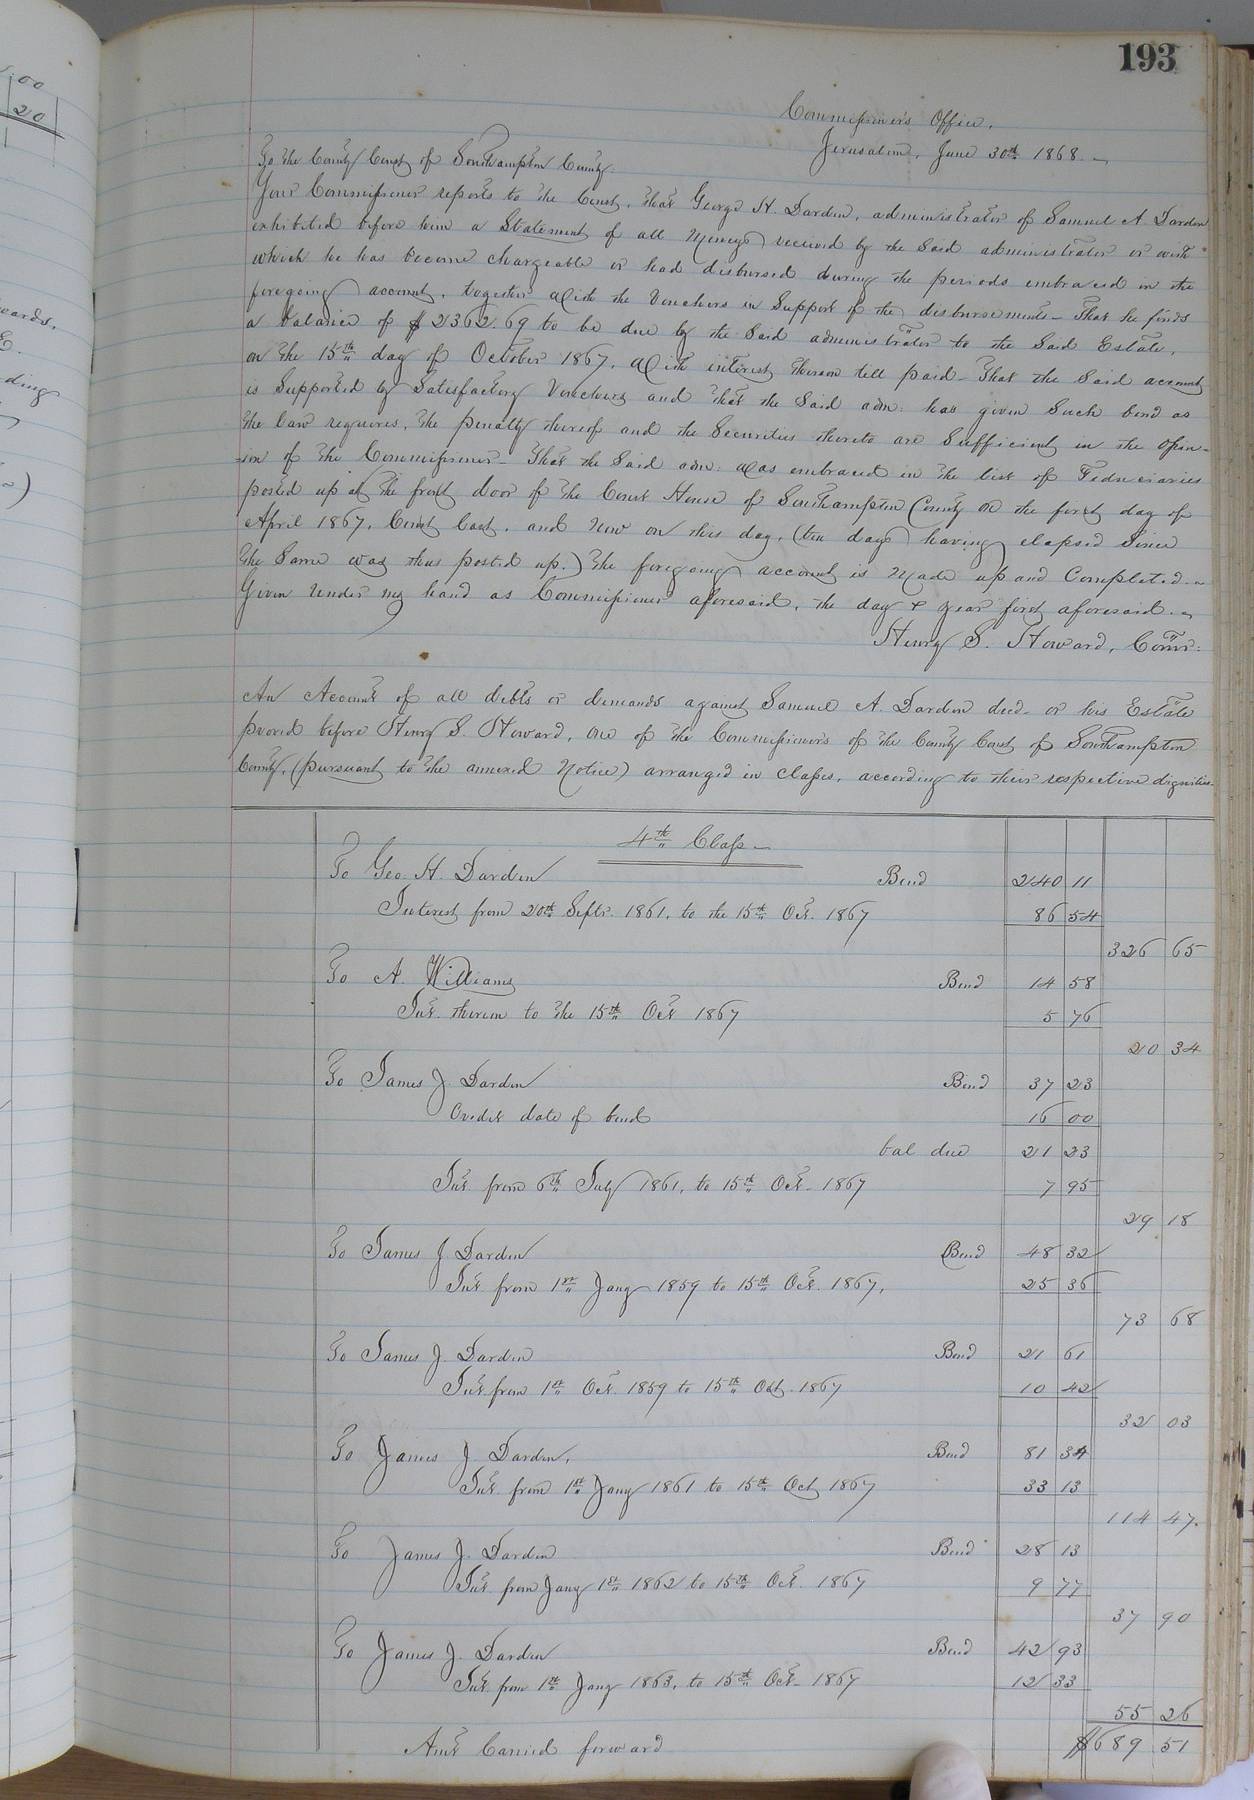 00
20
193
Commissioners Office,
Jerusalem, June 30th 1868.
To the County Court of Southampton County.
Your Commissioner reports to the Court, that George H. Darden, administrator of Samuel A. Darden
exhibited before him a Statement of all Moneys received by the said administrator or with
which he has become chargeable or had disbursed during the periods embraced in the
foregoing account, together with the Vouchers in Support of the disbursements - That he finds
a balance of $2362.69 to be due by the said administrator to the Said Estate,
on the 15th day of October 1867, With interest thereon till paid - That the Said account
is Supported by Satisfactory Vouchers and that the Said adm: has given Such bond as
the law requires, the penalty thereof and the Securities thereto are Sufficient in the Opin-
-ion of the Commissioner - That the Said adm: was embraced in the list of Fiduciaries
posted up at the front door of the Court House of Southampton County on the first day of
April 1867, Court Court, and Now on this day, (ten days having elapsed Since
the Same was thus posted up.) the foregoing account is Made up and Completed.
Given Under my hand as Commissioner aforesaid, the day & year first aforesaid.
Henry S. Howard, Comr:
An Account of all debts or demands against Samuel A. Darden decd. or his Estate
proved before Henry S. Howard, one of the Commissioners of the County Court of Southampton
County, (pursuant to the annexed Notice) arranged in classes, according to their respective dignities.
4th Class
To Geo. H. Darden Bond 240 11
Interest from 20th Septr. 1861, to the 15th Oct. 1867 86 54
326 65
To A. Williams Bond 14 58
Int. thereon to the 15th Oct 1867 5 76
20 34
To James J. Darden Bond 37 23
Credit date of bond 16 00
bal due 21 23
Int. from 6th July 1861, to 15th Oct. 1867 7 95
29 18
To James J. Darden Bond 48 32
Int. from 1st Jany 1859 to 15th Oct. 1867, 25 36
73 68
To James J. Darden Bond 21 61
Int. from 1st Oct. 1859 to 15th Oct. 1867 10 42
32 03
To James J. Darden, Bond 81 34
Int. from 1st Jany 1861 to 15th Oct 1867 33 13
114 47.
To James J. Darden Bond 28 13
Int. from Jany 1st 1862 to 15th Oct. 1867 9 77
37 90
To James J. Darden Bond 42 93
Int. from 1st Jany 1863, to 15th Oct. 1867 12 33
55 26
Amt Carried forward $689 51